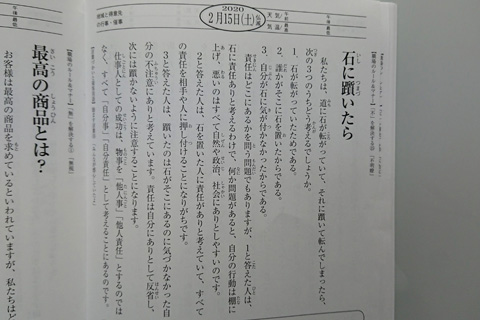 2020
2月15日(土)
仏滅
天気
気温
午前 最高
午後 最低
地域と得意先
の行事・催事
石に躓いたら
私たちは、道に石が転がっていて、それに躓いて転んでしまったら、
次の3つのうちどう考えるでしょうか。
1、石が転がっていたためである。
2、誰かがそこに石を置いたからである。
3、自分が石に気が付かなかったからである。
責任はどこにあるかを問う問題でもありますが、1と答えた人は、
石に責任ありと考えるわけで、何か問題があると、自分の行動は棚に
上げ、悪いのはすべて自然や政治、社会にありとしやすいのです。
2と答えた人は、石を置いた人に責任がありと考えていて、すべて
の責任を相手や人に押し付けることになりがちです。
3と答えた人は、躓いたのは石がそこにあるのに気づかなかった自
分の不注意にありと考えています。責任は自分にありとして反省し、
次には躓かないように注意することになります。
仕事人としての成功は、物事を「他人事」「他人責任」とするのでは
なく、すべて「自分事」「自分責任」として考えることにあるのです。
最高の商品とは?
お客様は最高の商品を求めているといわれていますが、私たちはど